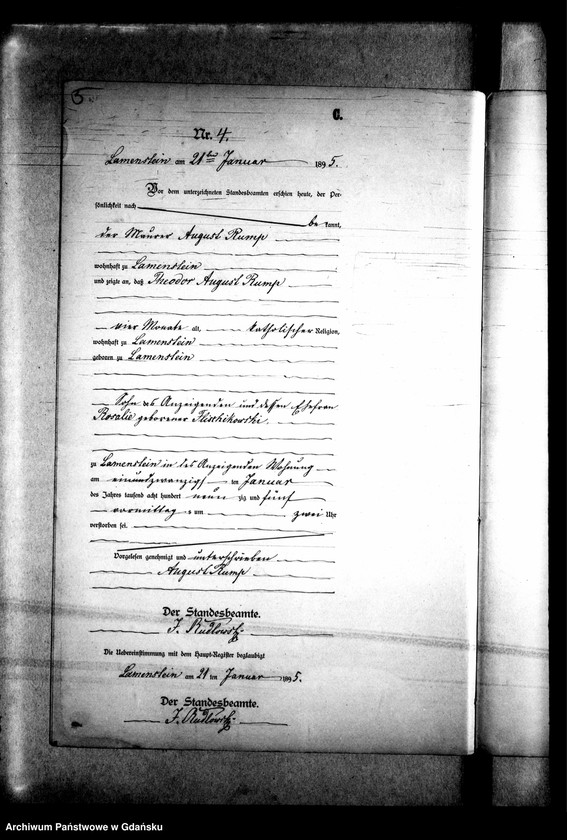 5.
C.
Nr. 4.
Lamenstein am 21ten Januar 1895.
Vor dem unterzeichneten Standesbeamten erschien heute, der Per-
sönlichkeit nach
be kannt,
der Maurer August Rump
wohnhaft zu Lamenstein
und zeigte an, daß Theodor August Rump
vier Monate alt, katholischer Religion,
wohnhaft zu Lamenstein
geboren zu Lamenstein
Sohn des Anzeigenden und dessen Ehefrau
Rosalie geborener
zu Lamenstein in des Anzeigenden Wohnung
am einundzwanzigsten Januar
des Jahres tausend acht hundert neun zig und fünf
vormittags um zwei Uhr
verstorben sei.
Vorgelesen genehmigt und unterschrieben
August Rump
Der Standesbeamte.
J.
Die Uebereinstimmung mit dem Haupt-Register beglaubigt
Lamenstein am 21 ten Januar 1895.
Der Standesbeamte.
J.
Archiwum Państwowe w Gdańsku